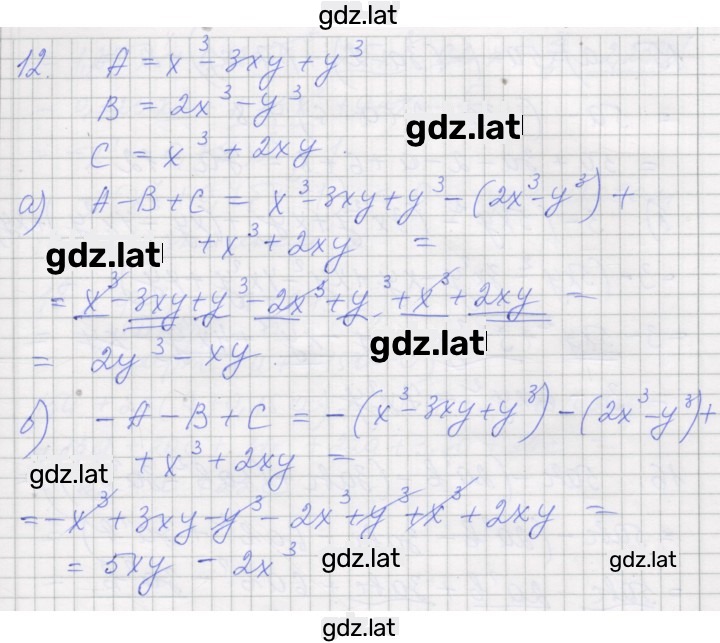 gdz.lat
12. A = x³ - 3xy + y³
B = 2x³ - y³
gdz.lat
C = x³ + 2xy.
а) A - B + C = x³ - 3xy + y³ - (2x³ - y³) +
gdz.lat
+ x³ + 2xy =
= x³ - 3xy + y³ - 2x³ + y³ + x³ + 2xy =
gdz.lat
= 2y³ - xy.
б) - A - B + C = -(x³ - 3xy + y³) - (2x³ - y³) +
gdz.lat
+ x³ + 2xy =
= - x³ + 3xy - y³ - 2x³ + y³ + x³ + 2xy =
= 5xy - 2x³
gdz.lat
gdz.lat
gdz.lat